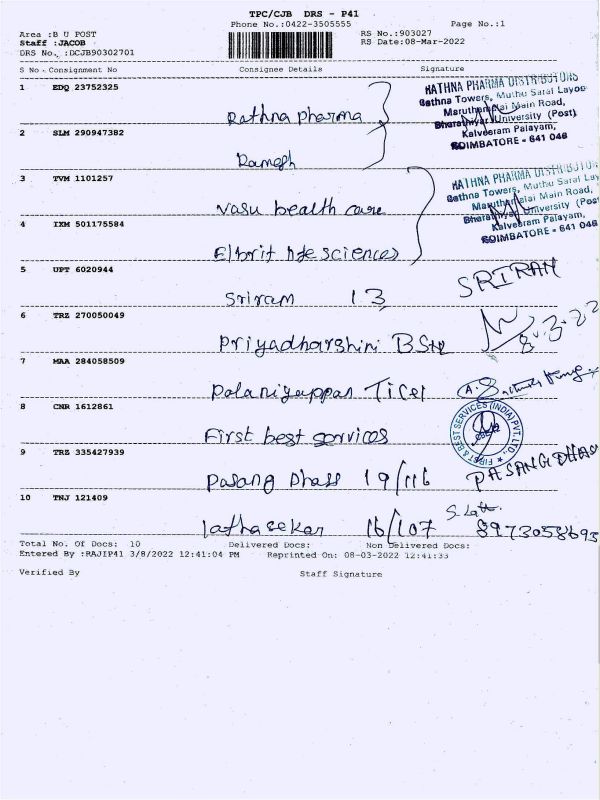 TPC/CJB DRS - P41
Phone No.:0422-3505555
Page No.:1
Area :B U POST
RS No.:903027
Staff :JACOB
RS Date:08-Mar-2022
DRS No. :DCJB90302701
S No Consignment No Consignee Details Signature
1 EDQ 23752325
Rathna pharma
RATHNA PHARMA DISTRIBUTORS
Rathna Towers, Muthu Saral Layou
Maruthamalai Main Road,
Bharathiyar University (Post)
Kalveeram Palayam,
COIMBATORE - 641 046
2 SLM 290947382
Ramesh
3 TVM 1101257
Vasu health care
RATHNA PHARMA DISTRIBUTO
Rathna Towers, Muthu Saral Lay
Maruthamalai Main Road,
Bharathiyar University (Post
Kalveeram Palayam,
COIMBATORE - 641 046
4 IXM 501175584
Elbrit life sciences
5 UPT 6020944
Sriram 13
SRIRAM
6 TRZ 270050049
Priyadharshini BSNL
8-3-22
7 MAA 284058509
Palaniyappan Ticel
8 CNR 1612861
First best services
FIRST & BEST SERVICES (INDIA) PVT. LTD.,
9 TRZ 335427939
Pasang Dhass 19/116
PASANG DHAS
10 TNJ 121409
lathasekar 16/107
S. Latha
8973058693
Total No. Of Docs: 10 Delivered Docs: Non Delivered Docs:
Entered By :RAJIP41 3/8/2022 12:41:04 PM Reprinted On: 08-03-2022 12:41:33
Verified By Staff Signature